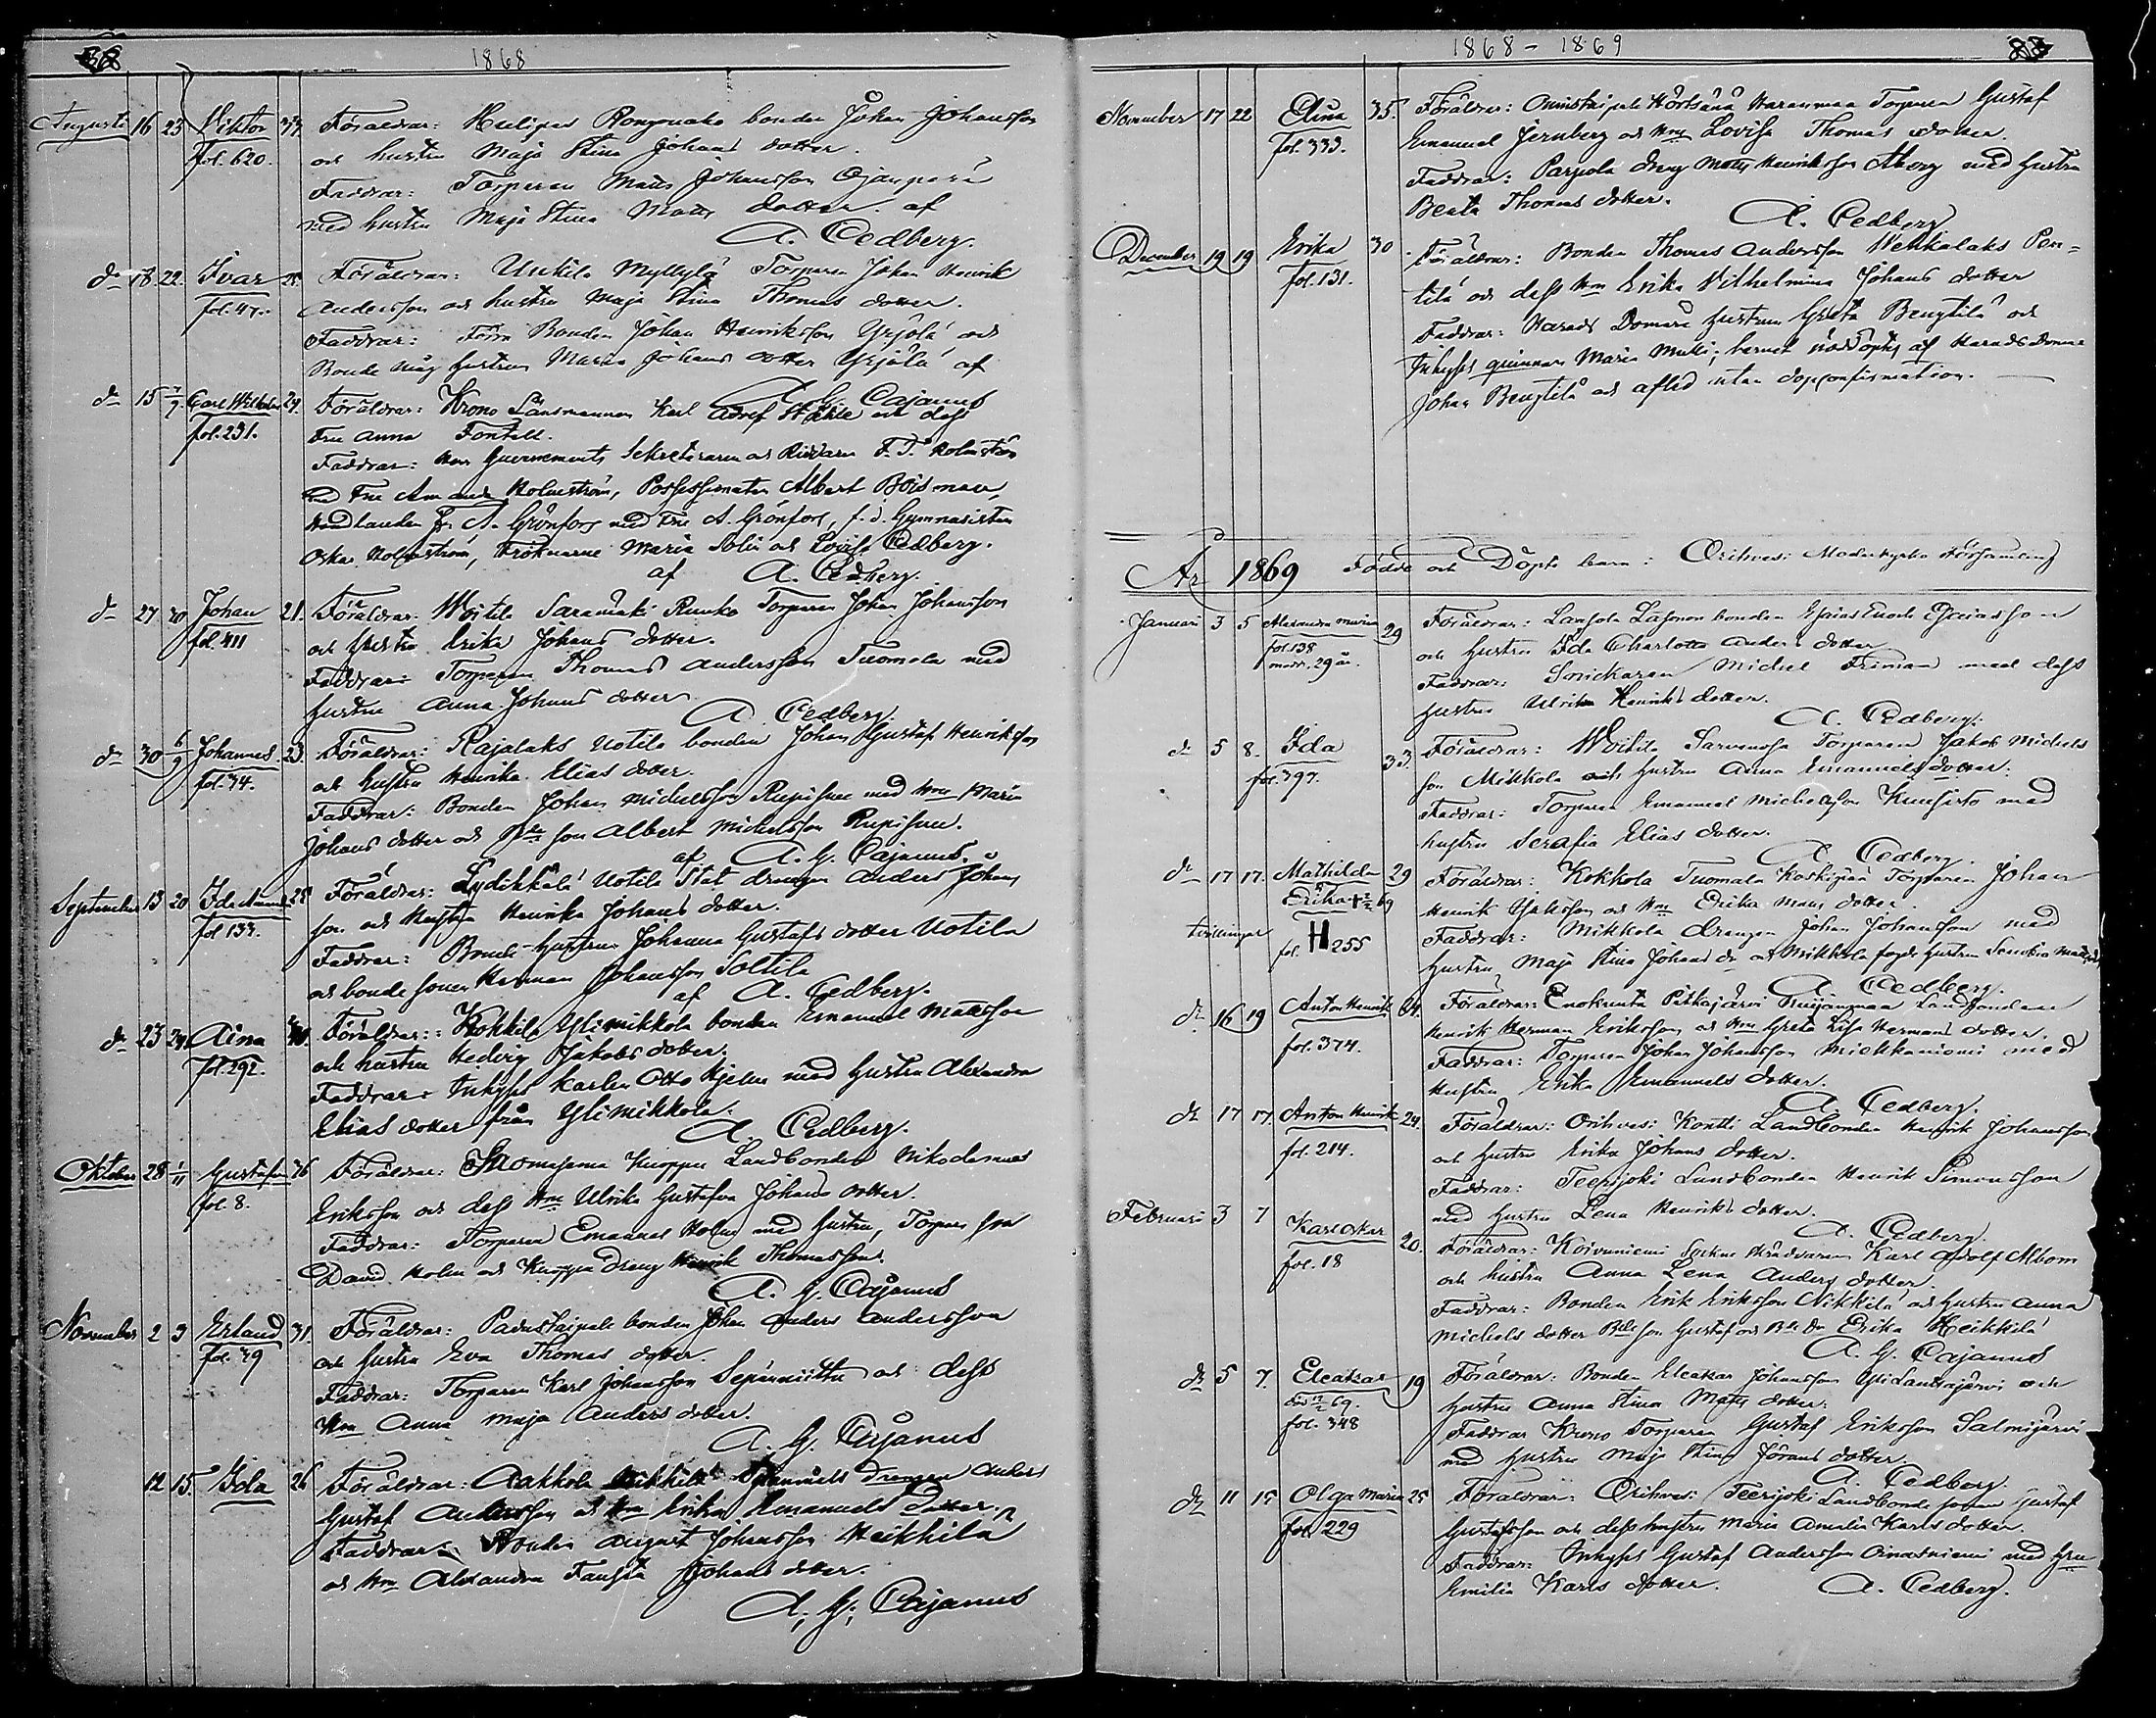 1868
Augusti 16 23 Viktor 33. Föräldrar: Hulipas Ronganaho bonden Johan Johansson
fol. 620. och hustru Maja Stina Johans dotter.
Faddrar: Torparen Matts Johansson Ojanperä
med hustru Maja Stina Matts dotter. af
A. Cedberg.
do 18 22. Ivar 25. Föräldrar: Uskila Myllylä Torparen Johan Henrik
fol. 47. Andersson och hustru Maja Stina Thomas dotter.
Faddrar: Förra Bonden Johan Henriksson Yrjölä och
Bonde måg hustrun Maria Johans dotter Yrjölä af
A. G. Cajanus
do 15 7/9 Carl Wilhelm 29. Föräldrar: Krono Länsmannen Karl Adolf Ståhle och dess
fol. 231. Fru Anna Fontell.
Faddrar: Herr Guvernements Sekreteraren och Riddaren F. T. Holmström
med Fru Amanda Holmström, Possessionaten Albert Boisman,
Handlanden A. Grönfors med Fru A. Grönfors, f.d. Gymnasisten
Oskar Holmström, Fröknarne Maria Solin och Lovisa Cedberg.
af A. Cedberg.
do 27 30 Johan 21. Föräldrar: Woitila Saramäki Runko Torparen Johan Johansson
fol. 411 och hustru Erika Johans dotter.
Faddrar: Torparen Thomas Andersson Tuomela med
hustru Anna Johans dotter
A. Cedberg
do 30 6/9 Johannes 23. Föräldrar: Rajalaks Uotila bonden Johan Gustaf Henriksson
fol. 34. och hustru Henrika Elias dotter.
Faddrar: Bonden Johan Michelsson Rupisuu med Hru Maria
Johans dotter och Bde son Albert Michelsson Rupisuu.
af A. G. Cajanus.
September 13 20 Ida 28 Föräldrar: Lydikkälä Uotila Stat drängen Anders Johans
fol 133. son och Hustru Henrika Johans dotter.
Faddrar: Bonde-hustrun Johanna Gustafs dotter Uotila
och bonde sonen Herman Johansson Soltila
af A. Cedberg.
do 23 24 Aina 40. Föräldrar: Kokkila Ylimikkola bonden Emanuel Mattsson
fol. 292. och hustru Hedvig Jakobs dotter.
Faddrar: Inhyses karlen Otto Hjelm med hustru Alexandra
Elias dotter från Ylimikkola.
A. Cedberg.
Oktober 28 1/11 Gustafva 36 Föräldrar: Knuppi Landbonden Nikodemus
fol. 8. Eriksson och dess Hru Ulrika Gustafva Johans dotter.
Faddrar: Torparen Emanuel Holm med hustru, Torpare son
David Holm och Knuppi Dreng Henrik Thomasson.
A. G. Cajanus
November 2 3 Erland 31. Föräldrar: Padustaipale bonden Johan Anders Andersson
fol. 39 och hustru Eva Thomas dotter.
Faddrar: Torparen Karl Johansson Sepänniittu och dess
Hru Anna Maja Anders dotter.
A. G. Cajanus
12 15. Ida 26 Föräldrar: Aakkola Mikkilä drengen Anders
Gustaf Andersson och Hru Erika Emanuels Dotter.
Faddrar: Bonden August Johansson Heikkilä
och Hru Alexandra Fausta Johans dotter.
A. G. Cajanus
1868 - 1869
November 17 22 Elina 35. Föräldrar: Onnistaipale Hörtsänä Haranmaa Torparen Gustaf
fol. 333. Emanuel Jernberg och Hru Lovisa Thomas dotter.
Faddrar: Parpola dreng Matts Henriksson Åberg med hustru
Beata Thomas dotter.
A. Cedberg
December 19 19 Erika 30. Föräldrar: Bonden Thomas Andersson Wehkalaks Pen=
fol. 131. tilä och dess Hru Erika Wilhelmina Johans dotter
Faddrar: Härads Domare hustrun Greta Bengtilä och
Inhyses quinnan Maria Mulli; barnet nöddöptes af Härads Domare
Johan Bengtilä och afled utan dopconfirmation.
År 1869 Födde och Döpte barn: Orihvesi Moderkyrko Församling
Januari 3 5 Alexandra Maria 29 Föräldrar: Längola Lahonen bonden Esaias Enock Esaiasson
fol. 138 och hustru Ida Charlotta Anders dotter
modr. 29 år. Faddrar: Snickaren Michel Friman med dess
hustru Ulrika Henriks dotter.
A. Cedberg.
do 5 8. Ida 33. Föräldrar: Woitila Sarvenoja Torparen Jakob Michels
fol. 397. son Mikkola och hustru Anna Emanuels dotter.
Faddrar: Torparen Emanuel Michelsson Kuusisto med
hustru Serafia Elias dotter.
A. Cedberg.
do 17 17. Mathilda 29 Föräldrar: Kokkola Tuomala Koskipää Torparen Johan
Erika Henrik Jakobsson och Hru Erika Matts dotter.
tvillingar fol. 255 Faddrar: Mikkola Drengen Johan Johansson med
hustru Maja Stina Johans dr och Mikkola fogde hustrun
A. Cedberg.
do 16 19 Anton Henrik 34. Föräldrar: Enokunta Pitkäjärvi Landbonden
fol. 374. Henrik Herman Eriksson och Hru Greta Lisa Hermans dotter.
Faddrar: Torparen Johan Johansson Mickkaniemi med
Hustru Erika Emanuels dotter.
A. Cedberg.
do 17 17. Anton Henrik 24. Föräldrar: Orihvesi Kontti Landbonden Henrik Johansson
fol. 214. och hustru Erika Johans dotter.
Faddrar: Teerijoki Landbonden Henrik Simonsson
med hustru Lena Henriks dotter.
A. Cedberg.
Februari 3 7 Karl Oskar 20. Föräldrar: Koivuniemi Sockne Skräddaren Karl Adolf Albom
fol. 18 och hustru Anna Lena Anders dotter.
Faddrar: Bonden Erik Eriksson Nikkilä och hustru Anna
Michels dotter Bde son Gustaf och Bde dr Erika Heikkilä
A. G. Cajanus
do 5 7. Eleatzar 19 Föräldrar: Bonden Eleatzar Johansson Yli Landtajärvi och
död 12/2 69. hustru Anna Stina Matts dotter.
fol. 348 Faddrar Krono Torparen Gustaf Eriksson Salmijärvi
med hustru Maja Stina Görans dotter.
A. Cedberg.
do 11 15 Olga Maria 25 Föräldrar: Orihvesi Teerijoki Landbonde sonen Gustaf
fol. 229 Gustafsson och dess hustru Maria Amalia Karls dotter.
Faddrar: Inhyses Gustaf Andersson Oinasniemi med hru
Emilia Karls dotter. A. Cedberg.